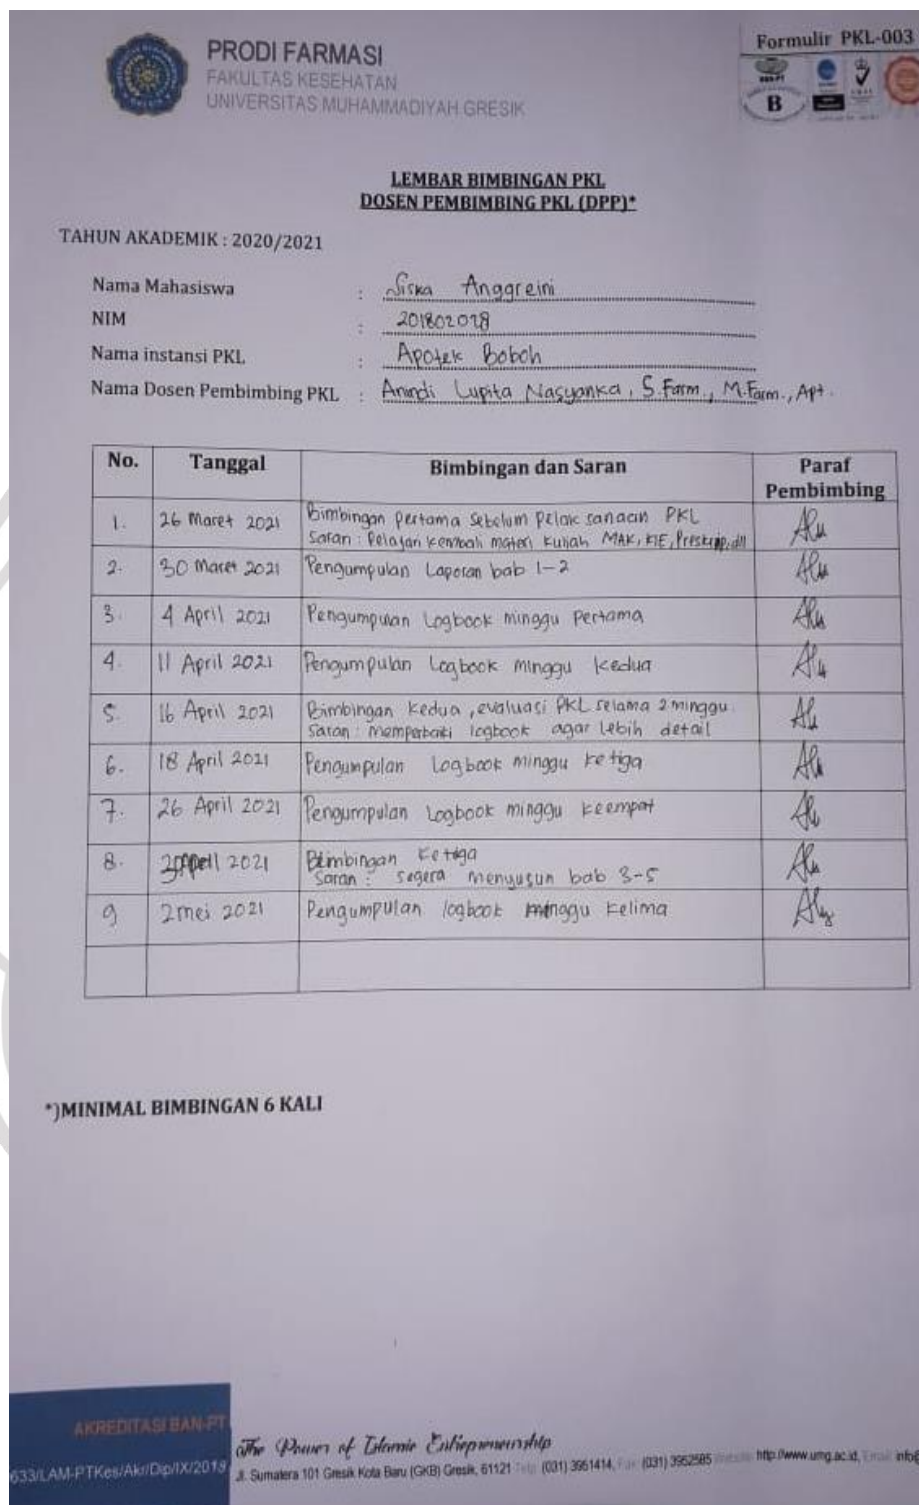 PRODI FARMASI
FAKULTAS KESEHATAN
UNIVERSITAS MUHAMMADIYAH GRESIK
Formulir PKL-003
B
LEMBAR BIMBINGAN PKL
DOSEN PEMBIMBING PKL (DPP)*
TAHUN AKADEMIK : 2020/2021
Nama Mahasiswa : Siska Anggreini
NIM : 201802028
Nama instansi PKL : Apotek Boboh
Nama Dosen Pembimbing PKL : Anindi Lupita Nasyanka, S.Farm., M.Farm., Apt.
No. Tanggal Bimbingan dan Saran Paraf Pembimbing
1. 26 Maret 2021 Bimbingan pertama sebelum pelaksanaan PKL
Saran : Pelajari kembali materi kuliah MAK, KIE, Preskrip, dll
2. 30 Maret 2021 Pengumpulan Laporan bab 1-2
3. 4 April 2021 Pengumpulan Logbook minggu pertama
4. 11 April 2021 Pengumpulan Logbook minggu kedua
5. 16 April 2021 Bimbingan kedua, evaluasi PKL selama 2 minggu.
Saran : memperbaiki logbook agar lebih detail
6. 18 April 2021 Pengumpulan Logbook minggu ketiga
7. 26 April 2021 Pengumpulan Logbook minggu keempat
8. April 2021 Bimbingan ketiga
Saran : segera menyusun bab 3-5
9 2 mei 2021 Pengumpulan logbook minggu kelima
*)MINIMAL BIMBINGAN 6 KALI
AKREDITASI BAN-PT
633/LAM-PTKes/Akr/Dip/IX/2018
The Power of Islamic Entrepreneurship
Jl. Sumatera 101 Gresik Kota Baru (GKB) Gresik, 61121 Telp. (031) 3951414, Fax. (031) 3952585 Website: http://www.umg.ac.id, Email: info@